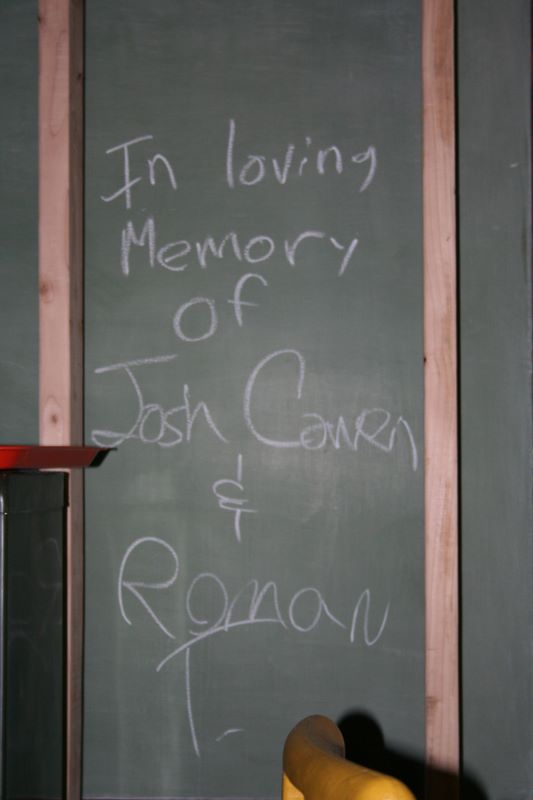 In loving
Memory
of
Josh Cowen
&
Roman
T.